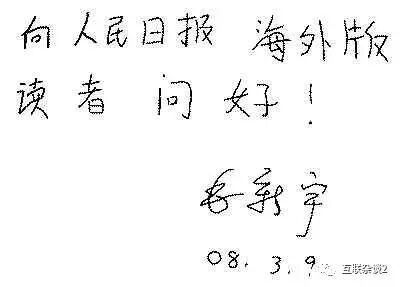 向人民日报 海外版
读者 问 好!
毛新宇
08.3.9
互联杂谈2